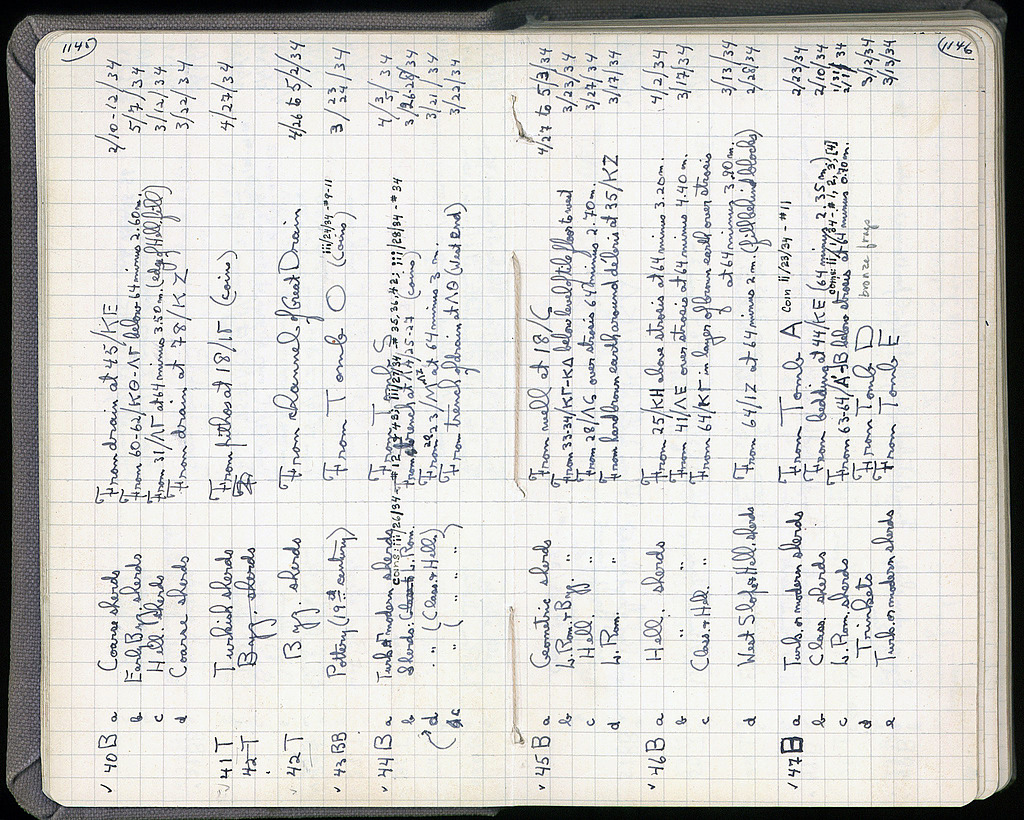 1145
✓ 40 B a Coarse sherds From drain at 43/ΚΕ 2/10-12/34
b Early Byz. sherds From 60-62/ΚΘ-ΛΓ below 64 minus 2.60 m. 5/7/34
c Hell. sherds From 31/ΛΓ at 64 minus 3.50 m. (edge of Hell fill) 3/12/34
d Coarse sherds From drain at 78/ΚΖ 3/22/34
✓ 41 T Turkish sherds From pithos at 18/ΙΓ (coins) 4/27/34
42 T Byz. sherds
✓ 42 T Byz sherds From channel of Great Drain 4/26 to 5/2/34
✓ 43 BB Pottery (19th century) From Tomb O (iii/24/34-#9-11 coins) 3/23 24/34
✓ 44 B a Turk. or modern sherds From Tomb G 4/3 5/34
coins: iii/26/34-#12, #48; iii/27/34-#35,36,42; iii/28/34-#34
b Sherds: L. Rom. From trench at ΛΑ/25-27 (coins) 3/26-28/34
d " " (Class. & Hell.) From 23/ΛΓ at 64 minus 3 m. 3/21/34
c " ( " " " ) From trench of drain at ΛΘ (West end) 3/22/34
1146
✓ 45 B a Geometric sherds From well at 18/G 4/27 to 5/3/34
b L. Rom. & Byz. " From 33-34/ΚΓ-ΚΔ below level of tile floor to west 3/23/34
c Hell. " From 28/ΛG over strosis 64 minus 2.70 m. 3/27/34
d L. Rom. " From hard brown earth around debris at 35/ΚΖ 3/17/34
✓ 46 B a Hell. sherds From 25/ΚΗ above strosis at 64 minus 3.20 m. 4/2/34
b " " From 41/ΛΕ over strosis at 64 minus 4.40 m. 3/17/34
c Class. & Hell. " From 64/ΚΓ in layer of brown earth over strosis at 64 minus 3.20 m. 3/13/34
d West Slope & Hell. sherds From 64/ΙΖ at 64 minus 2 m. (fill behind blocks) 2/28/34
✓ 47 B a Turk. or modern sherds From Tomb A coin ii/23/34-#11 2/23/34
b Class. sherds From bedding at 44/ΚΕ (64 minus 2.35 m.) 2/10/34
coins: ii/1/34-#1, 2, 3, [4]
c L. Rom. sherds From 63-64/Α'-Β below strosis at 64 minus 0.70 m. 1/31/34 2/1/34
d Trinkets From Tomb D bronze frags 3/12/34
e Turk. or modern sherds From Tomb E 3/13/34